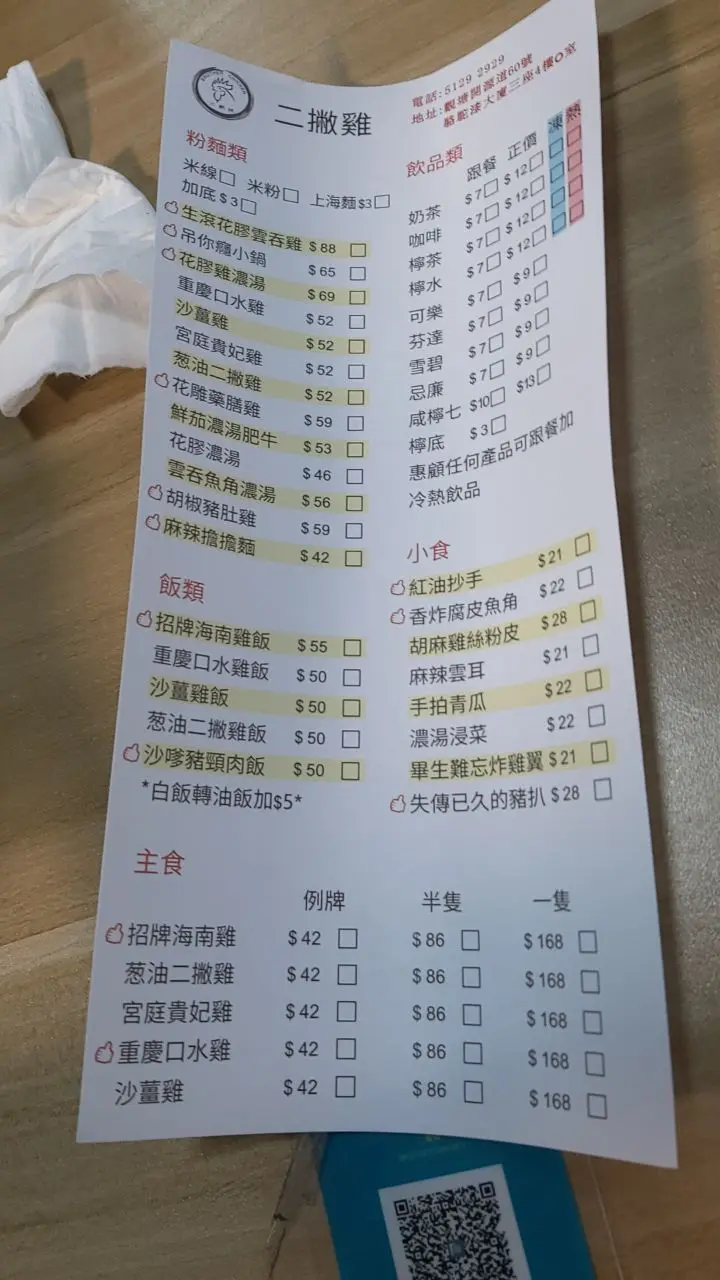 二撇雞
電話:5129 2929
地址:觀塘開源道60號
駱駝漆大廈三座4樓O室
粉麵類
米線 米粉 上海麵$3
加底 $3
生滾花膠雲吞雞 $88
吊你癮小鍋 $65
花膠雞濃湯 $69
重慶口水雞 $52
沙薑雞 $52
宮庭貴妃雞 $52
葱油二撇雞 $52
花雕藥膳雞 $59
鮮茄濃湯肥牛 $53
花膠濃湯 $46
雲吞魚角濃湯 $56
胡椒豬肚雞 $59
麻辣擔擔麵 $42
飯類
招牌海南雞飯 $55
重慶口水雞飯 $50
沙薑雞飯 $50
葱油二撇雞飯 $50
沙嗲豬頸肉飯 $50
*白飯轉油飯加$5*
飲品類
跟餐 正價 凍 熱
奶茶 $7 $12
咖啡 $7 $12
檸茶 $7 $12
檸水 $7 $12
可樂 $7 $9
芬達 $7 $9
雪碧 $7 $9
忌廉 $7 $9
咸檸七 $10 $13
檸底 $3
惠顧任何產品可跟餐加
冷熱飲品
小食
紅油抄手 $21
香炸腐皮魚角 $22
胡麻雞絲粉皮 $28
麻辣雲耳 $21
手拍青瓜 $22
濃湯浸菜 $22
畢生難忘炸雞翼 $21
失傳已久的豬扒 $28
主食
例牌 半隻 一隻
招牌海南雞 $42 $86 $168
葱油二撇雞 $42 $86 $168
宮庭貴妃雞 $42 $86 $168
重慶口水雞 $42 $86 $168
沙薑雞 $42 $86 $168